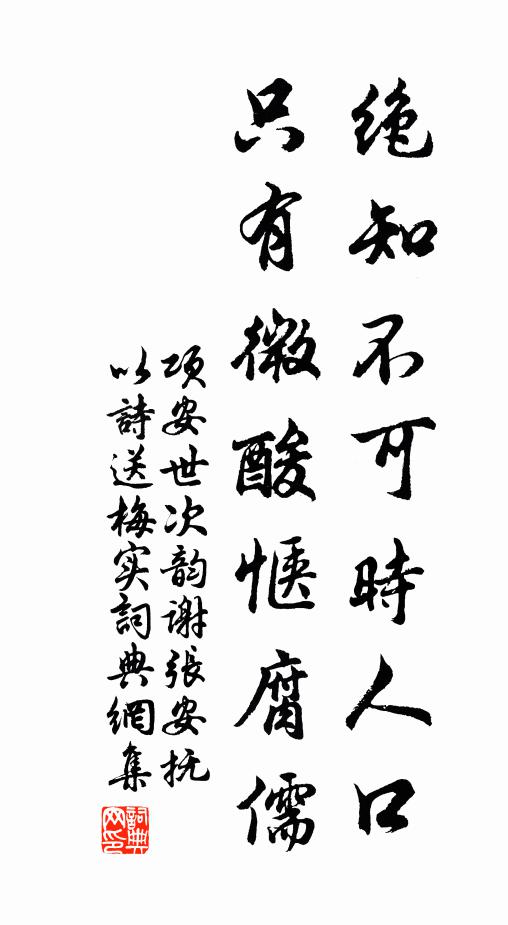 绝知不可時人口
只有微酸惬腐儒
项安世次韵谢張安抚
以詩送梅实詞典網集
詞典
网印